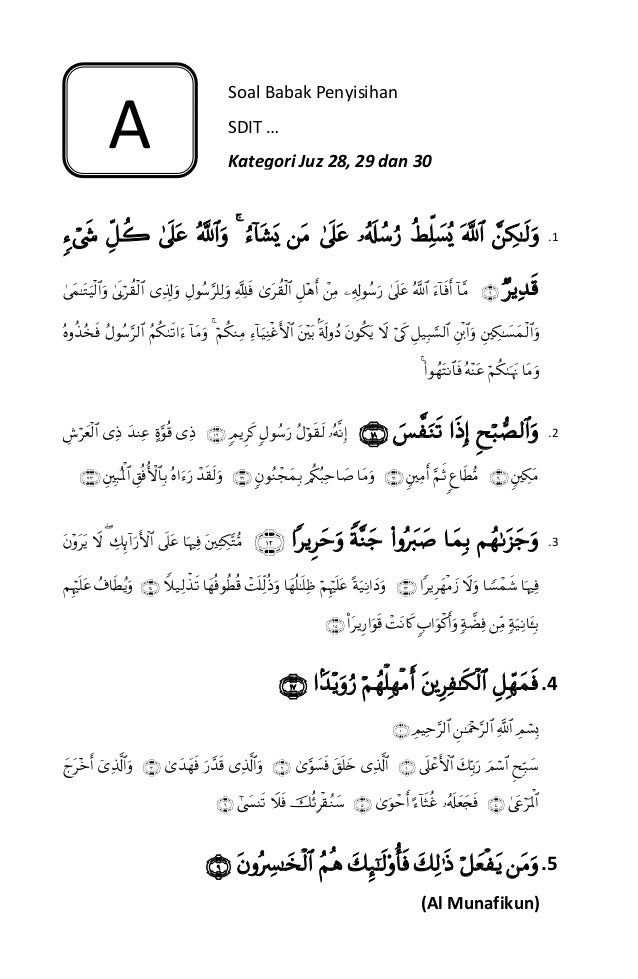 A
Soal Babak Penyisihan
SDIT ...
Kategori Juz 28, 29 dan 30
1. وَلَٰكِنَّ ٱللَّهَ يُسَلِّطُ رُسُلَهُۥ عَلَىٰ مَن يَشَآءُ ۚ وَٱللَّهُ عَلَىٰ كُلِّ شَىْءٍ
قَدِيرٌ ۝٦ مَّآ أَفَآءَ ٱللَّهُ عَلَىٰ رَسُولِهِۦ مِنْ أَهْلِ ٱلْقُرَىٰ فَلِلَّهِ وَلِلرَّسُولِ وَلِذِى ٱلْقُرْبَىٰ وَٱلْيَتَٰمَىٰ
وَٱلْمَسَٰكِينِ وَٱبْنِ ٱلسَّبِيلِ كَىْ لَا يَكُونَ دُولَةًۢ بَيْنَ ٱلْأَغْنِيَآءِ مِنكُمْ ۚ وَمَآ ءَاتَىٰكُمُ ٱلرَّسُولُ فَخُذُوهُ
وَمَا نَهَىٰكُمْ عَنْهُ فَٱنتَهُوا۟ ۚ
2. وَٱلصُّبْحِ إِذَا تَنَفَّسَ ۝١٨ إِنَّهُۥ لَقَوْلُ رَسُولٍ كَرِيمٍ ۝١٩ ذِى قُوَّةٍ عِندَ ذِى ٱلْعَرْشِ
مَكِينٍ ۝٢٠ مُّطَاعٍ ثَمَّ أَمِينٍ ۝٢١ وَمَا صَاحِبُكُم بِمَجْنُونٍ ۝٢٢ وَلَقَدْ رَءَاهُ بِٱلْأُفُقِ ٱلْمُبِينِ ۝٢٣
3. وَجَزَىٰهُم بِمَا صَبَرُوا۟ جَنَّةً وَحَرِيرًا ۝١٢ مُّتَّكِـِٔينَ فِيهَا عَلَى ٱلْأَرَآئِكِ ۖ لَا يَرَوْنَ
فِيهَا شَمْسًا وَلَا زَمْهَرِيرًا ۝١٣ وَدَانِيَةً عَلَيْهِمْ ظِلَٰلُهَا وَذُلِّلَتْ قُطُوفُهَا تَذْلِيلًا ۝١٤ وَيُطَافُ عَلَيْهِم
بِـَٔانِيَةٍ مِّن فِضَّةٍ وَأَكْوَابٍ كَانَتْ قَوَارِيرَا۠ ۝١٥
4. فَمَهِّلِ ٱلْكَٰفِرِينَ أَمْهِلْهُمْ رُوَيْدًۢا ۝١٧
بِسْمِ ٱللَّهِ ٱلرَّحْمَٰنِ ٱلرَّحِيمِ ۝
سَبِّحِ ٱسْمَ رَبِّكَ ٱلْأَعْلَى ۝١ ٱلَّذِى خَلَقَ فَسَوَّىٰ ۝٢ وَٱلَّذِى قَدَّرَ فَهَدَىٰ ۝٣ وَٱلَّذِىٓ أَخْرَجَ
ٱلْمَرْعَىٰ ۝٤ فَجَعَلَهُۥ غُثَآءً أَحْوَىٰ ۝٥ سَنُقْرِئُكَ فَلَا تَنسَىٰٓ ۝٦
5. وَمَن يَفْعَلْ ذَٰلِكَ فَأُو۟لَٰٓئِكَ هُمُ ٱلْخَٰسِرُونَ ۝٩
(Al Munafikun)